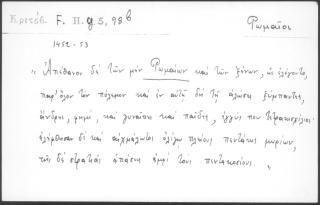 Κριτόβ. F. H. g 5, 98b
Ῥωμαῖοι
1452-53
„ Ἀπέθανον δὲ τῶν μὲν Ῥωμαίων καὶ τῶν ξένων, ὡς ἐλέγετο,
παρ' ὅλον τὸν πόλεμον καὶ ἐν αὐτῇ δὲ τῇ ἁλώσει ξύμπαντες,
ἄνδρες, φημί, καὶ γυναῖκες καὶ παῖδες, ἐγγύς που τετρακισχίλιοι·
ἐλήφθησαν δὲ καὶ αἰχμάλωτοι ὀλίγῳ πλείους πεντάκις μυρίων,
τῆς δὲ στρατιᾶς ἁπάσης ἀμφὶ τοὺς πεντακοσίους. „